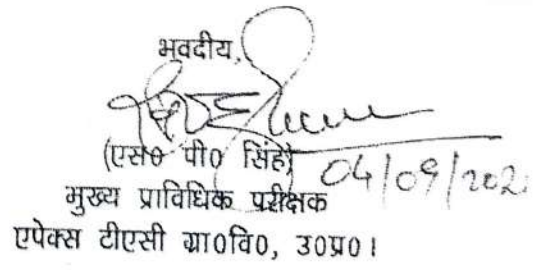 भवदीय,
(एस० पी० सिंह)
04/09/202
मुख्य प्राविधिक परीक्षक
एपेक्स टीएसी ग्रा०वि०, उ०प्र०।